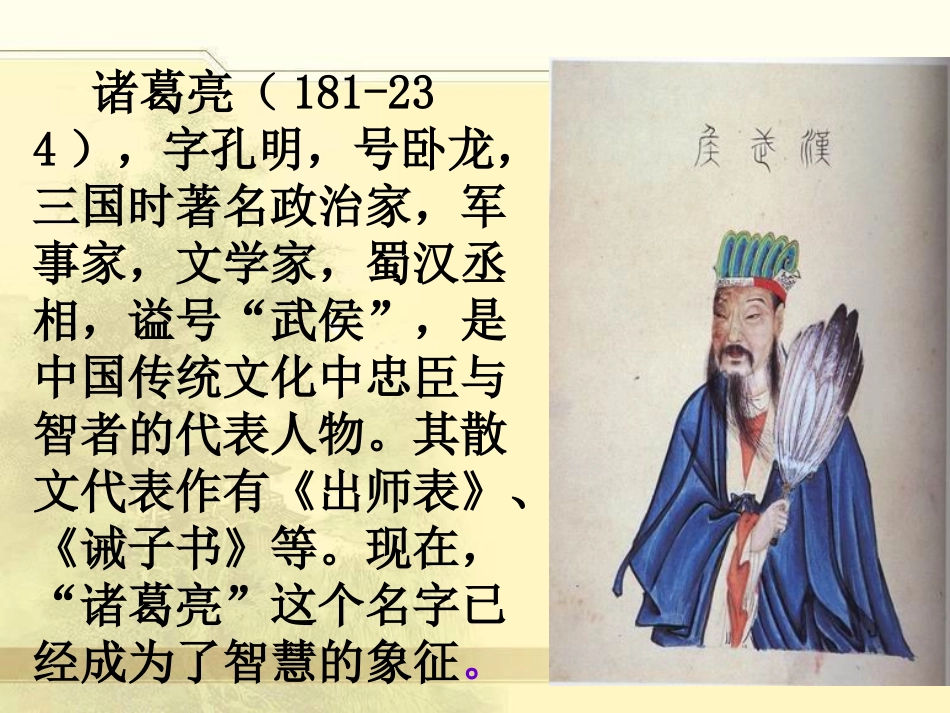 诸葛亮（181-23
4），字孔明，号卧龙，
三国时著名政治家，军
事家，文学家，蜀汉丞
相，谥号“武侯”，是
中国传统文化中忠臣与
智者的代表人物。其散
文代表作有《出师表》、
《诫子书》等。现在，
“诸葛亮”这个名字已
经成为了智慧的象征。
漢武侯